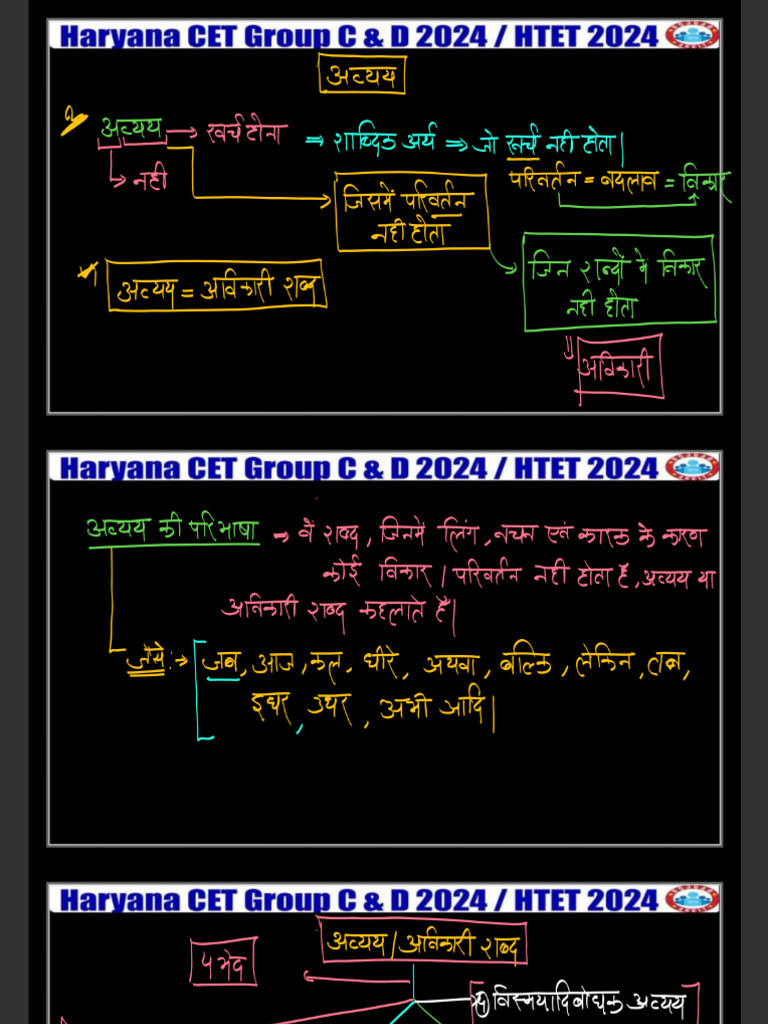 Haryana CET Group C & D 2024 / HTET 2024
अव्यय
अव्यय → खर्च होना ⇒ शाब्दिक अर्थ ⇒ जो खर्च नही होता|
→ नही
जिसमें परिवर्तन
नही होता
परिवर्तन = बदलाव = विकार
अव्यय = अविकारी शब्द
जिन शब्दों मे विकार
नही होता
अविकारी
Haryana CET Group C & D 2024 / HTET 2024
अव्यय की परिभाषा → वें शब्द, जिनमें लिंग, वचन एवं कारक के कारण
कोई विकार / परिवर्तन नही होता हैं, अव्यय या
अविकारी शब्द कहलाते हैं|
जैसे :→ जब, आज, कल, धीरे, अथवा, बल्कि, लेकिन, तब,
इधर, उधर, अभी आदि|
Haryana CET Group C & D 2024 / HTET 2024
अव्यय / अविकारी शब्द
5 भेद
विस्मयादिबोधक अव्यय